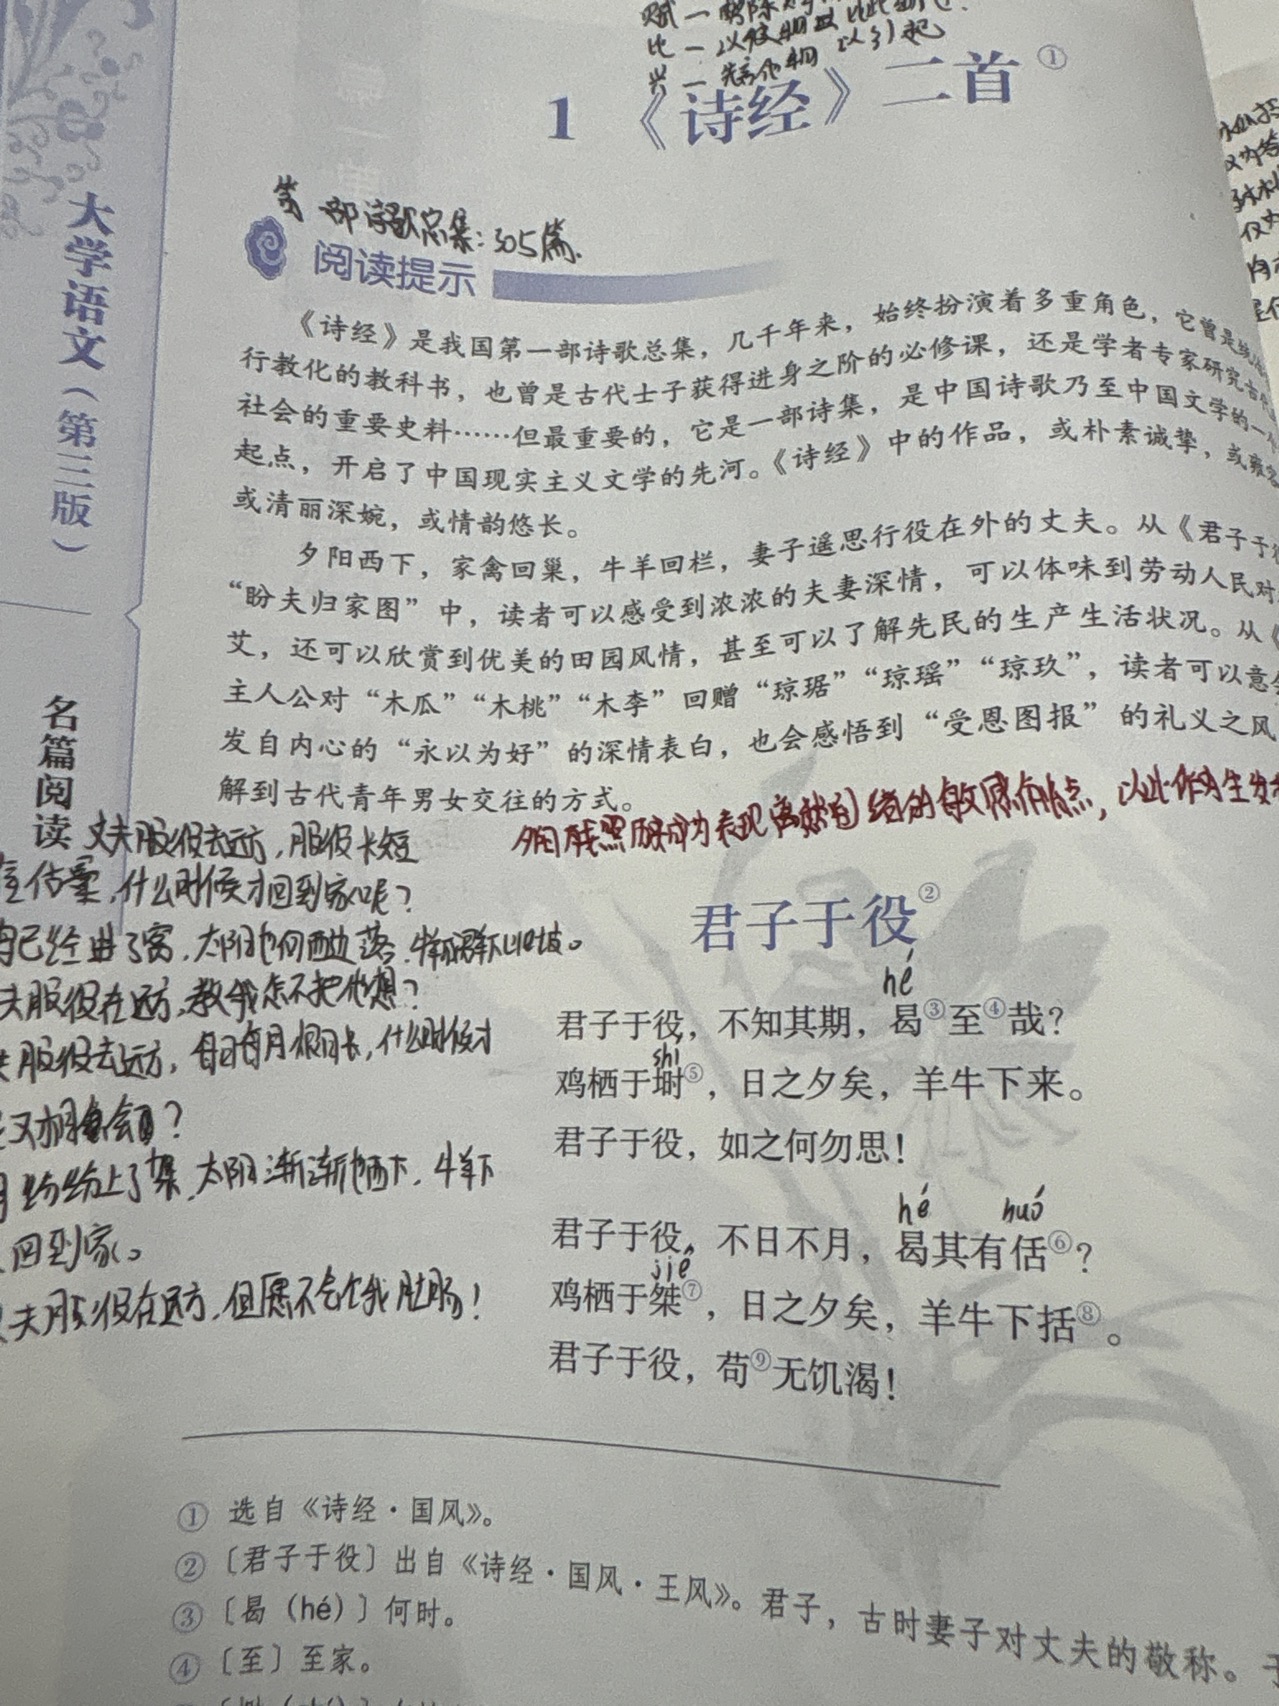 赋一
比一以彼物比此物也.
兴一先言他物 以引起
1 《诗经》二首①
第一部诗歌总集:305篇.
阅读提示
《诗经》是我国第一部诗歌总集，几千年来，始终扮演着多重角色，它曾是统治
行教化的教科书，也曾是古代士子获得进身之阶的必修课，还是学者专家研究古代
社会的重要史料……但最重要的，它是一部诗集，是中国诗歌乃至中国文学的一个
起点，开启了中国现实主义文学的先河。《诗经》中的作品，或朴素诚挚，或雍容
或清丽深婉，或情韵悠长。
夕阳西下，家禽回巢，牛羊回栏，妻子遥思行役在外的丈夫。从《君子于役
“盼夫归家图”中，读者可以感受到浓浓的夫妻深情，可以体味到劳动人民对
艾，还可以欣赏到优美的田园风情，甚至可以了解先民的生产生活状况。从《
主人公对“木瓜”“木桃”“木李”回赠“琼琚”“琼瑶”“琼玖”，读者可以意会
发自内心的“永以为好”的深情表白，也会感悟到“受恩图报”的礼义之风
解到古代青年男女交往的方式。
大学语文（第三版）
名篇阅读
夕阳残照历来成为表现离愁别绪的敏感作点，以此作为生发
丈夫服役去远方,服役长短
估量,什么时候才回到家呢?
已经进了窝,太阳也向西边落,牛羊成群下山坡。
夫服役在远方,教我怎不把他想?
夫服役去远方,每日每月恨日长,什么时候才
又相会?
纷纷上了架,太阳渐渐也西下,牛羊下
回到家。
夫服役在远方,但愿不会饿肚肠!
君子于役②
hé
君子于役，不知其期，曷③至④哉？
shí
鸡栖于埘⑤，日之夕矣，羊牛下来。
君子于役，如之何勿思！
hé huó
君子于役，不日不月，曷其有佸⑥？
jié
鸡栖于桀⑦，日之夕矣，羊牛下括⑧。
君子于役，苟⑨无饥渴！
① 选自《诗经·国风》。
② 〔君子于役〕出自《诗经·国风·王风》。君子，古时妻子对丈夫的敬称。于
③ 〔曷（hé）〕何时。
④ 〔至〕至家。